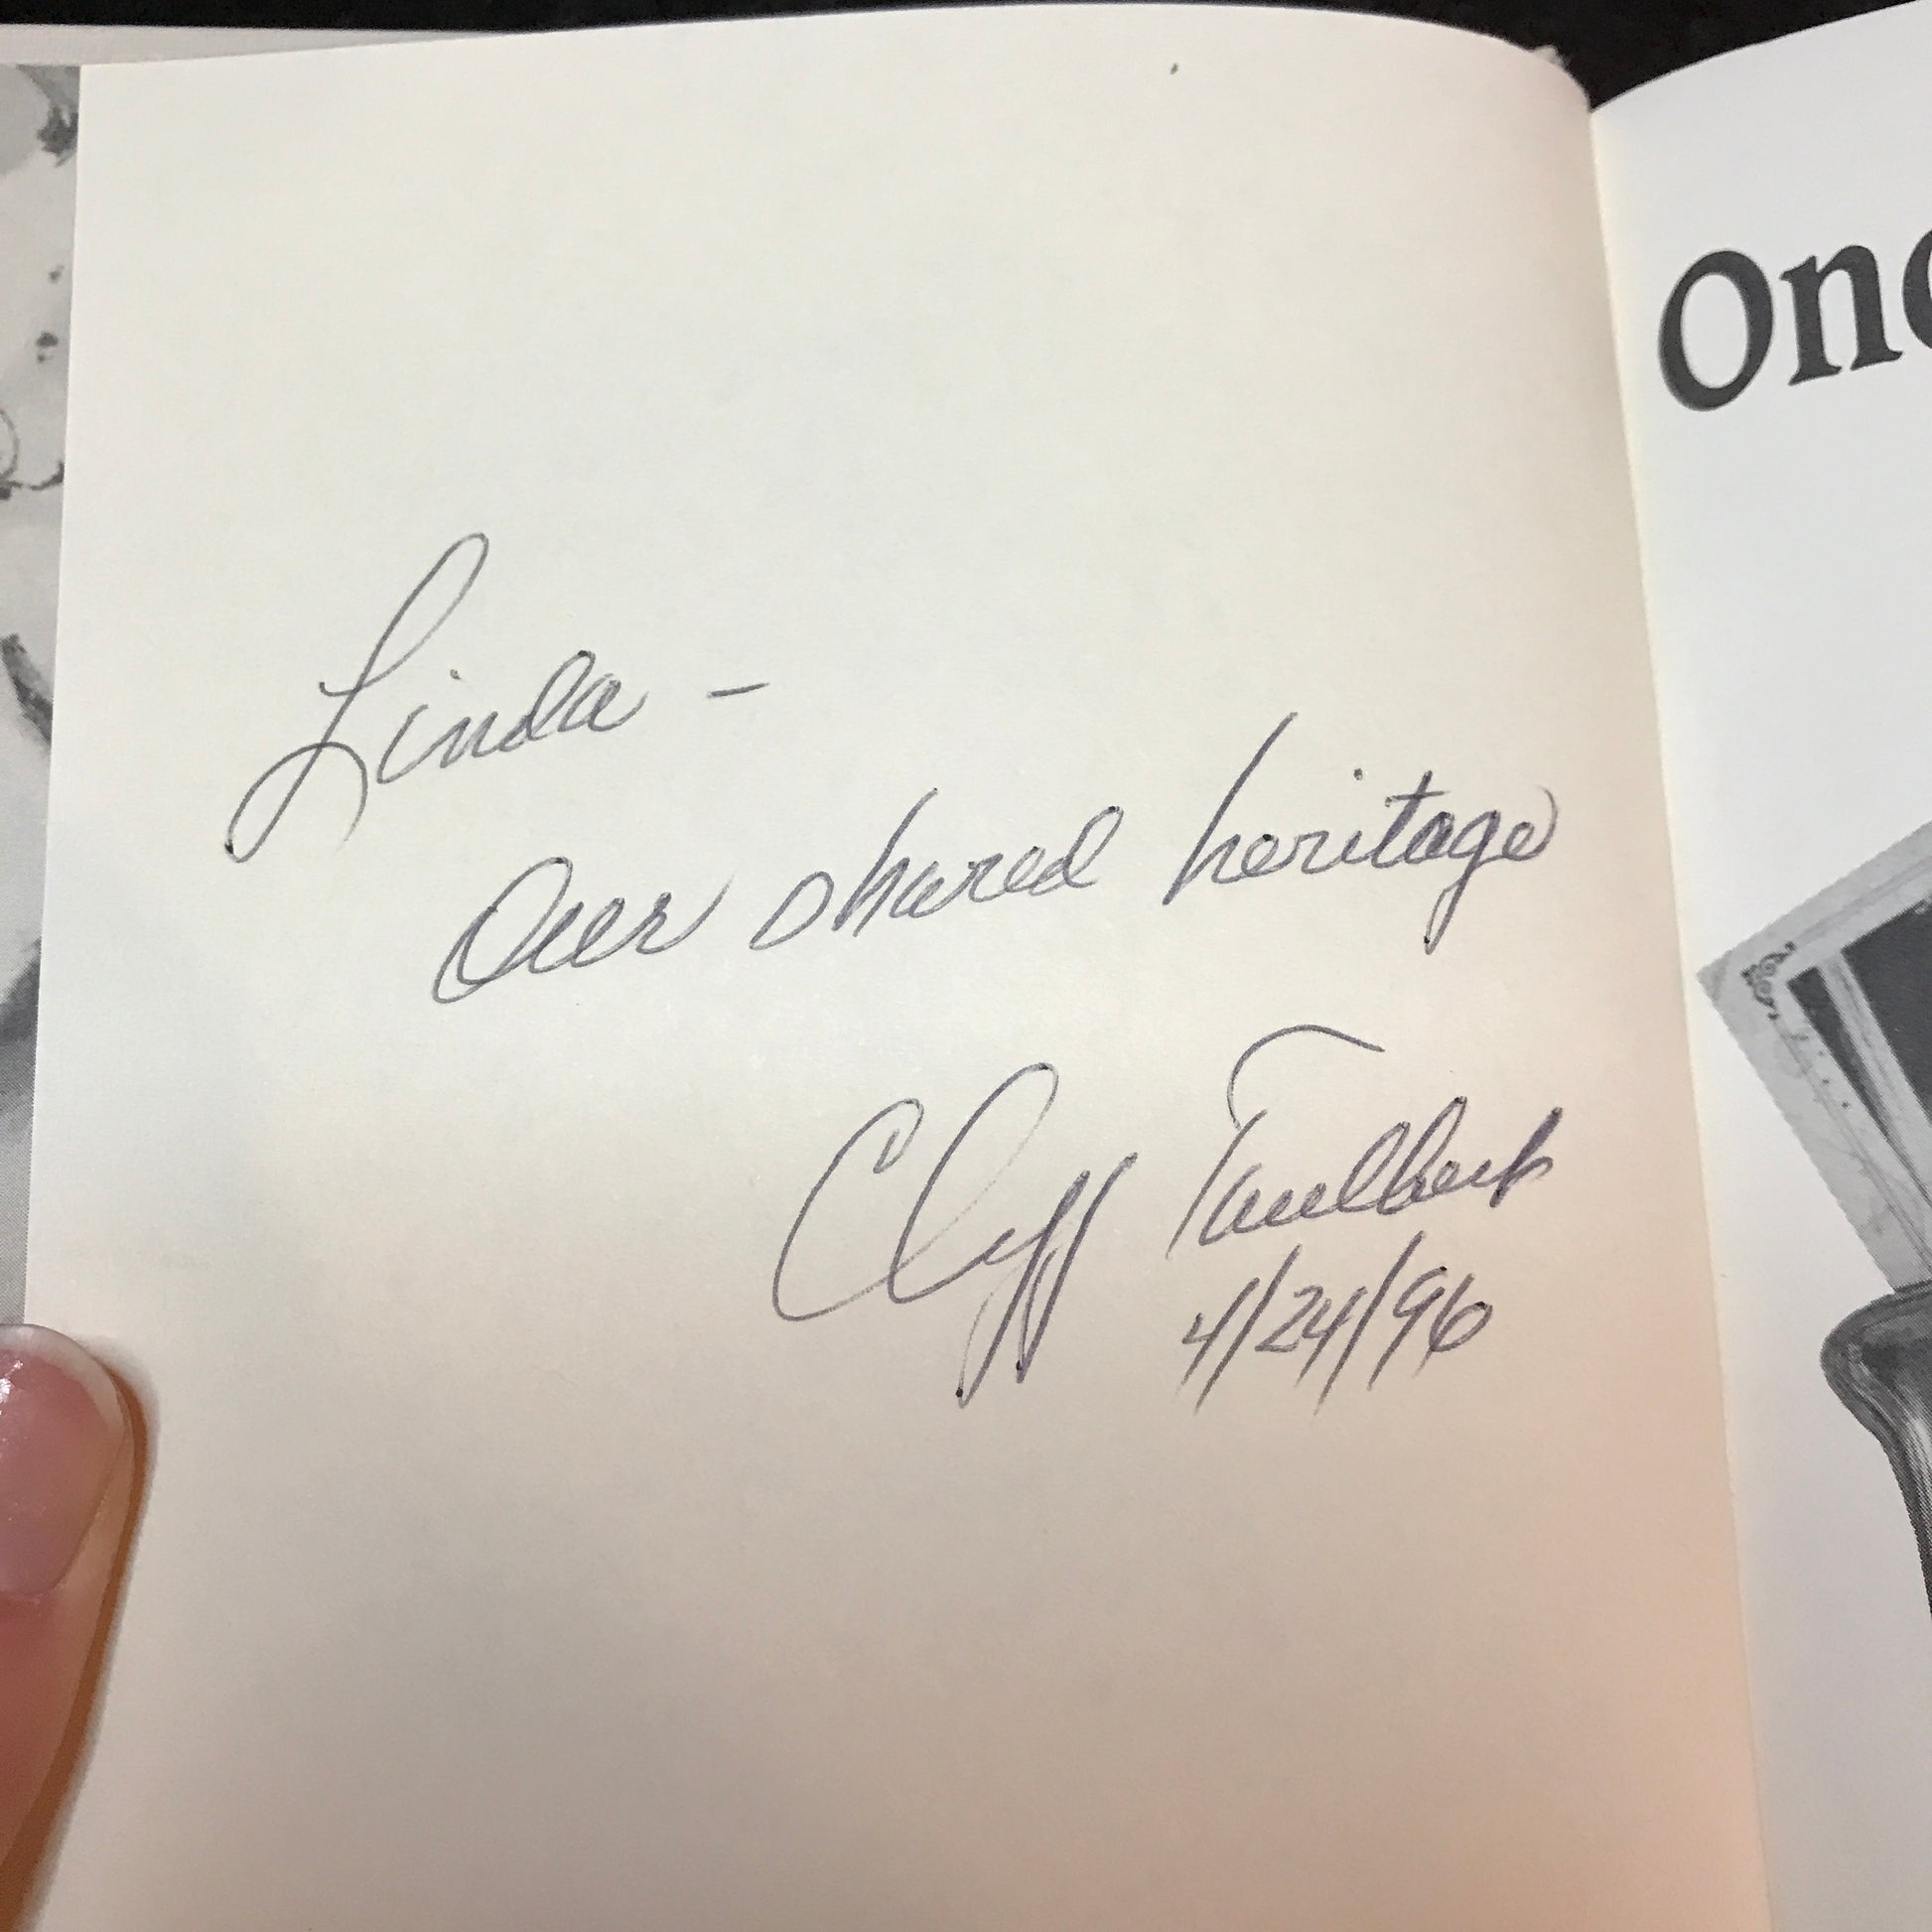 Linda -
Our shared heritage
Cliff Taulbert
4/24/96